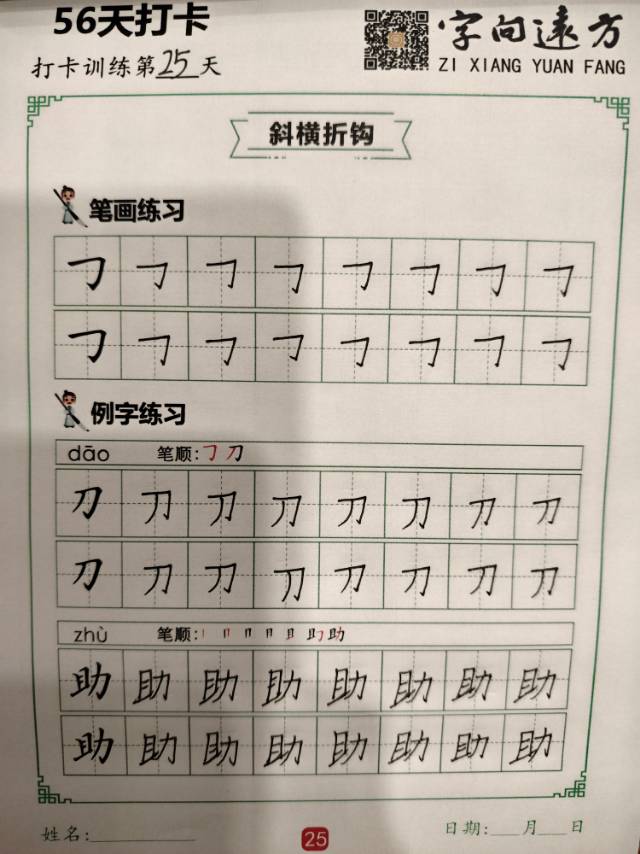 56天打卡
字向遠方
打卡训练第25天
ZI XIANG YUAN FANG
斜横折钩
笔画练习
㇆ ㇆ ㇆ ㇆ ㇆ ㇆ ㇆ ㇆
㇆ ㇆ ㇆ ㇆ ㇆ ㇆ ㇆ ㇆
例字练习
dāo 笔顺:㇆刀
刀 刀 刀 刀 刀 刀 刀 刀
刀 刀 刀 刀 刀 刀 刀 刀
zhù 笔顺:
助 助 助 助 助 助 助 助
助 助 助 助 助 助 助 助
姓名:__________ 25 日期:___月___日